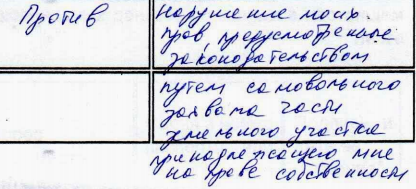 Против
Нарушение моих
прав, предусмотренные
законодательством
путем самовольного
захвата части
земельного участка
принадлежащего мне
на праве собственности